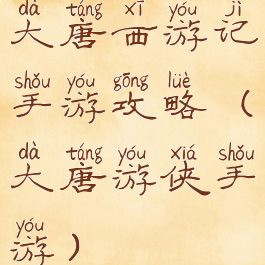 dà táng xī yóu jì
大唐西游记
shǒu yóu gōng lüè
手游攻略（
dà táng yóu xiá shǒu
大唐游侠手
yóu
游）